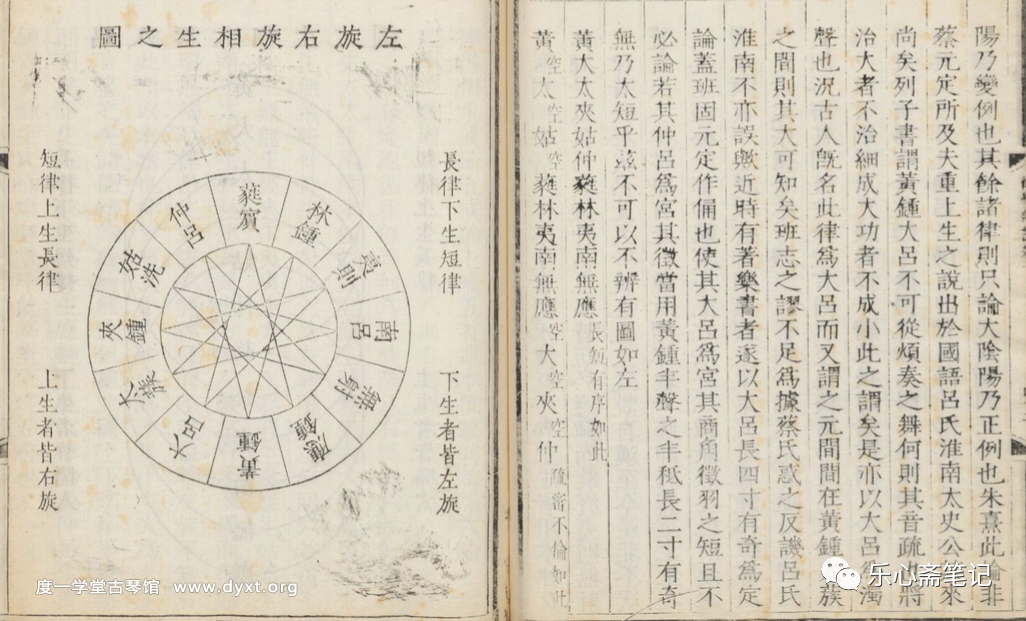 陽乃變例也其餘諸律則只論大陰陽乃正例也朱熹此論非
蔡元定所及夫重上生之說出於國語呂氏淮南太史公
來
尚矣列子書謂黃鍾大呂不可從煩奏之舞何則其音疏
將
治大者不治細成大功者不成小此之謂矣是亦以大呂
濁
聲也況古人旣名此律爲大呂而又謂之元間間在黃鍾
簇
之間則其大可知矣班志之謬不足爲據蔡氏惑之反譏呂氏
淮南不亦誤歟近時有著樂書者遂以大呂長四寸有奇爲定
論蓋班固元定作俑也使其大呂爲宮其商角徵羽之短且不
必論若其仲呂爲宮其徵當用黃鍾半聲之半秪長二寸有奇
無乃太短乎茲不可以不辨有圖如左
黃大太夾姑仲蕤林夷南無應長短有序如此
黃空太空姑空蕤林夷南無應空大空夾空仲疏密不倫如此
左旋右旋相生之圖
長律下生短律
下生者皆左旋
短律上生長律
上生者皆右旋
蕤賓
林鍾
夷則
南呂
無射
應鍾
黃鍾
大呂
太蔟
夾鍾
姑洗
仲呂
度一学堂古琴馆 www.dyxt.org
乐心斋笔记